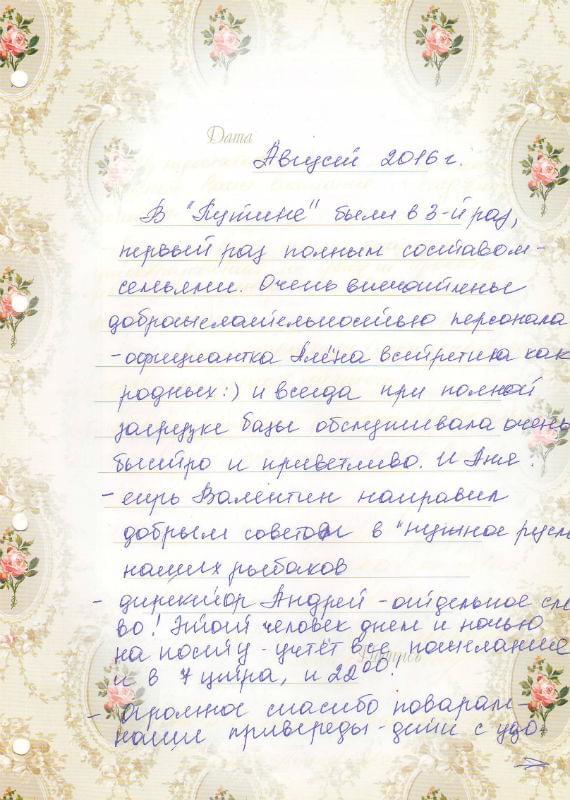 Дата
Август 2016 г.
В "Путине" были в 3-й раз,
первый раз полным составом-
семьями. Очень впечатлены
доброжелательностью персонала
-официантка Алёна встретила как
родных:) и всегда при полной
загрузке базы обслуживала очень
быстро и приветливо. И Аня.
- егерь Валентин направил
добрым советом в "нужное русл
наших рыбаков
- директор Андрей - отдельное сло
во! Этот человек днем и ночью
на посту - учтёт все пожелания
и в 7 утра, и 22⁰⁰.
- огромное спасибо поварам-
наши привереды-дети с удо-